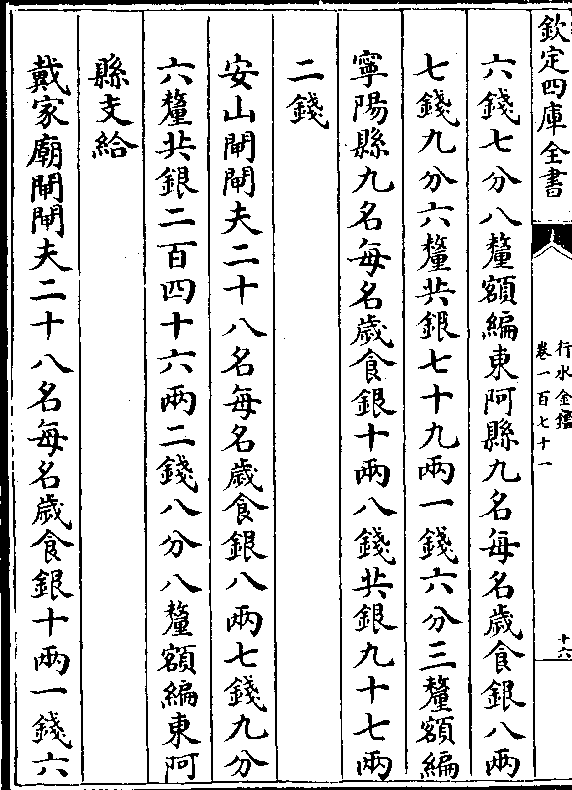 欽定四庫全書
行水金鑑
卷一百七十一
十六
六錢七分八釐額編東阿縣九名每名歲食銀八兩
七錢九分六釐共銀七十九兩一錢六分三釐額編
寧陽縣九名每名歲食銀十兩八錢共銀九十七兩
二錢
安山閘閘夫二十八名每名歲食銀八兩七錢九分
六釐共銀二百四十六兩二錢八分八釐額編東阿
縣支給
戴家廟閘閘夫二十八名每名歲食銀十兩一錢六